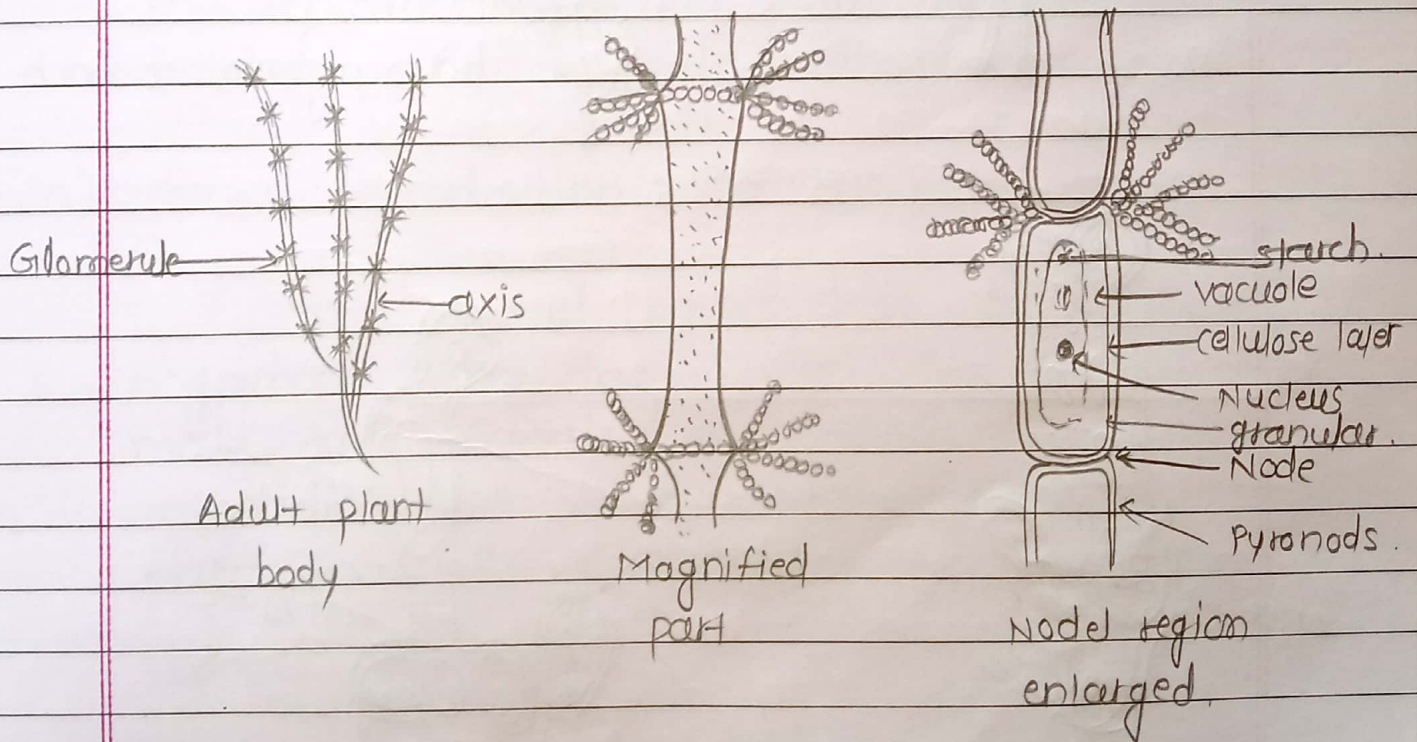 Glomerule
axis
Adult plant
body
Magnified
part
starch.
vacuole
cellulose layer
Nucleus
granular.
Node
Pyronods.
Nodel region
enlarged.